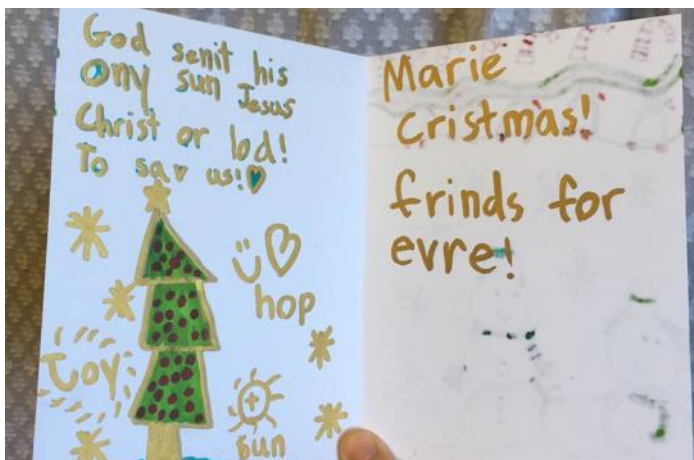 God senit his
ony sun Jesus
Christ or lod!
To sav us!
hop
Joy
sun
Marie
Cristmas!
frinds for
evre!